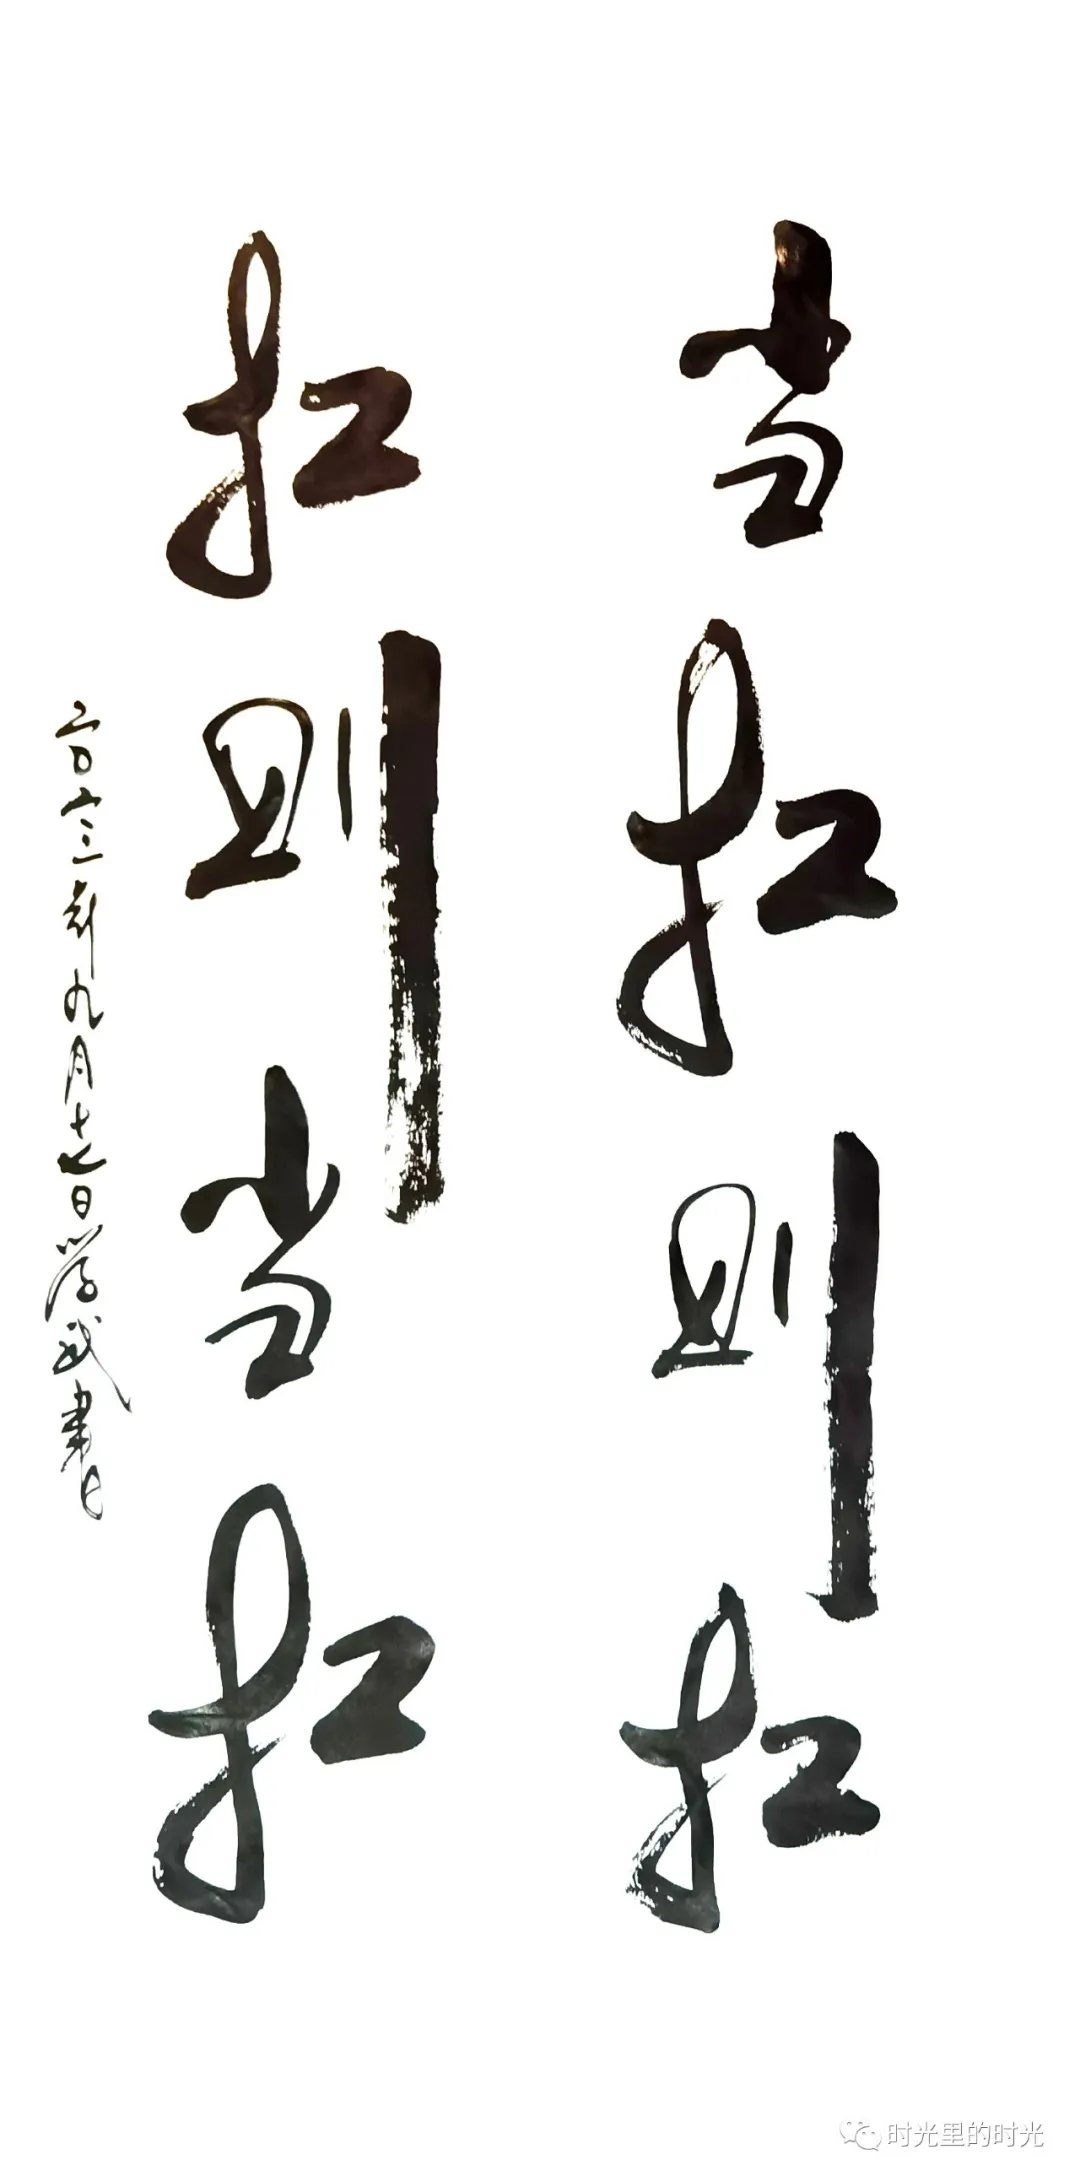 当扛则扛
扛则当扛
二〇二三年九月十七日学武书
时光里的时光